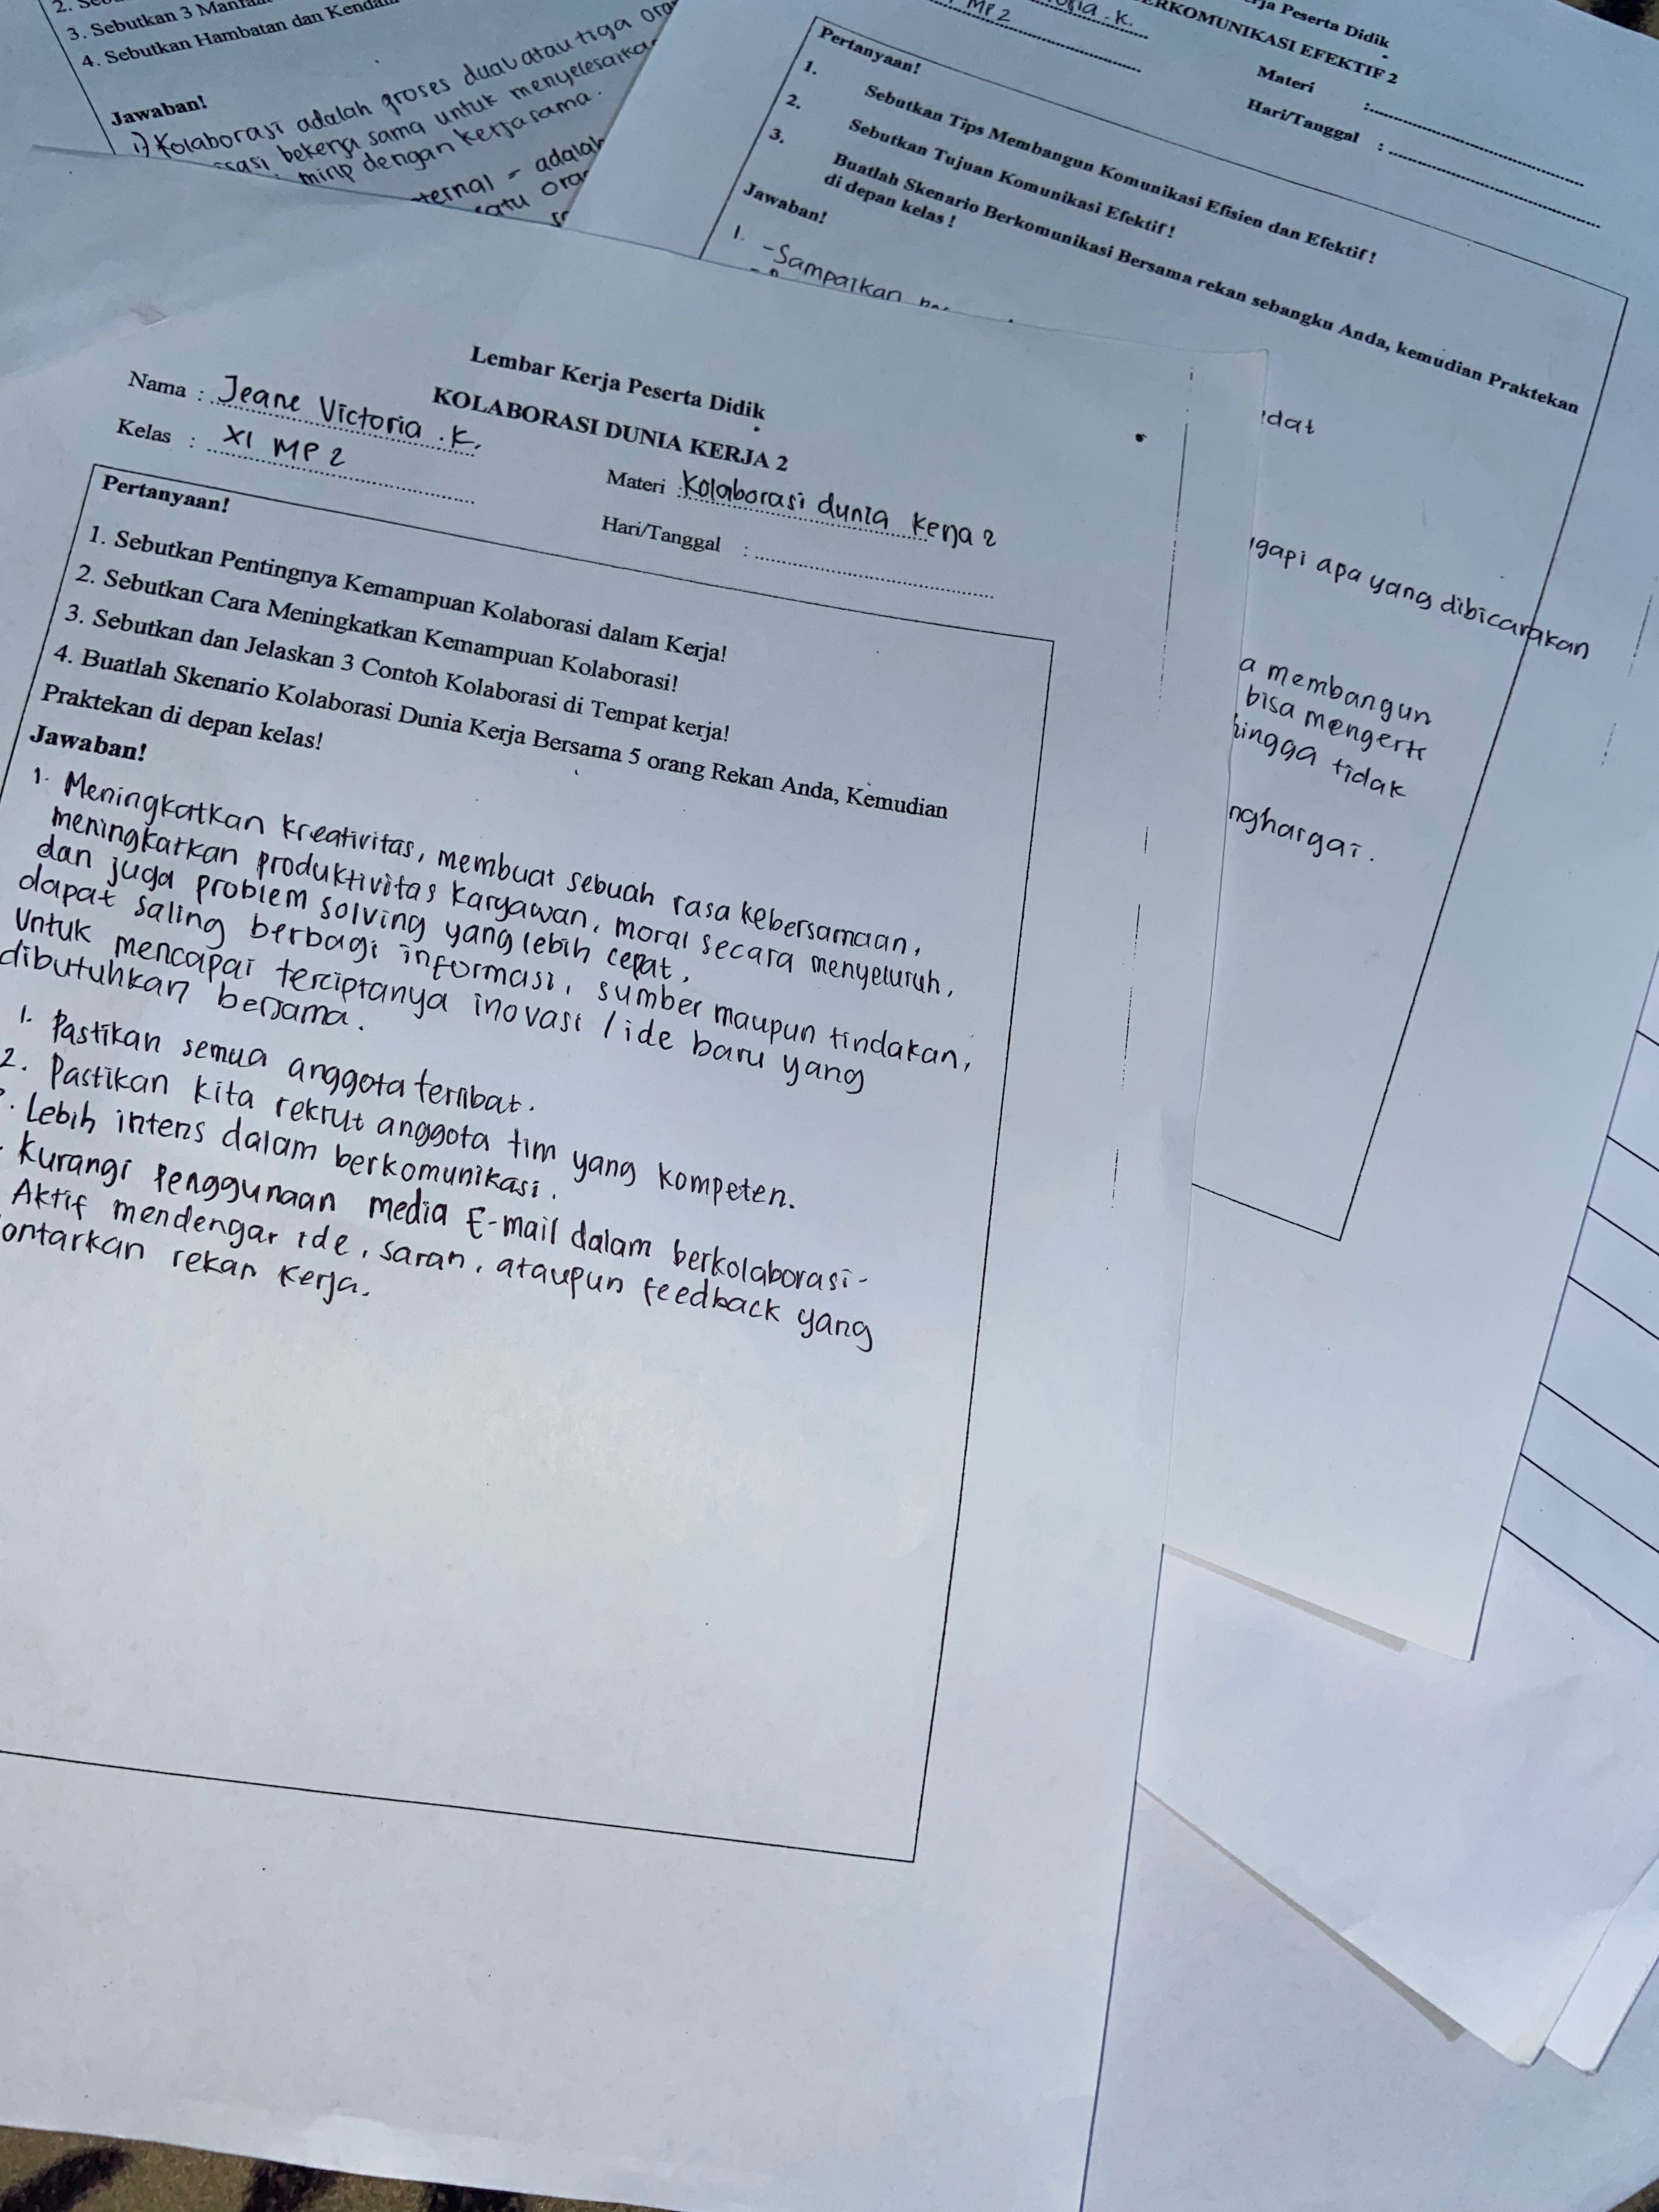 3. Sebutkan 3
4. Sebutkan Hambatan dan
Jawaban!
1) Kolaborasi adalah proses dua atau tiga
bekerja sama untuk
dengan kerjasama.
- adalah
Peserta Didik
EFEKTIF 2
MP 2
Materi :
Hari/Tanggal :
Pertanyaan!
1. Sebutkan Tips Membangun Komunikasi Efisien dan Efektif !
2. Sebutkan Tujuan Komunikasi Efektif !
3. Buatlah Skenario Berkomunikasi Bersama rekan sebangku Anda, kemudian Praktekan
di depan kelas !
Jawaban!
1. - Sampaikan
apa yang dibicarakan
membangun
bisa mengerti
tidak
Lembar Kerja Peserta Didik
KOLABORASI DUNIA KERJA 2
Nama : Jeane Victoria .K.
Kelas : XI MP 2
Materi : Kolaborasi dunia kerja 2
Hari/Tanggal :
Pertanyaan!
1. Sebutkan Pentingnya Kemampuan Kolaborasi dalam Kerja!
2. Sebutkan Cara Meningkatkan Kemampuan Kolaborasi!
3. Sebutkan dan Jelaskan 3 Contoh Kolaborasi di Tempat kerja!
4. Buatlah Skenario Kolaborasi Dunia Kerja Bersama 5 orang Rekan Anda, Kemudian
Praktekan di depan kelas!
Jawaban!
1. Meningkatkan kreativitas, membuat sebuah rasa kebersamaan,
meningkatkan produktivitas karyawan, moral secara menyeluruh,
dan juga problem solving yang lebih cepat,
dapat saling berbagi informasi, sumber maupun tindakan,
untuk mencapai terciptanya inovasi / ide baru yang
dibutuhkan bersama.
1. Pastikan semua anggota terlibat.
2. Pastikan kita rekrut anggota tim yang kompeten.
Lebih intens dalam berkomunikasi.
Kurangi penggunaan media E-mail dalam berkolaborasi-
Aktif mendengar ide, saran, ataupun feedback yang
rekan kerja.